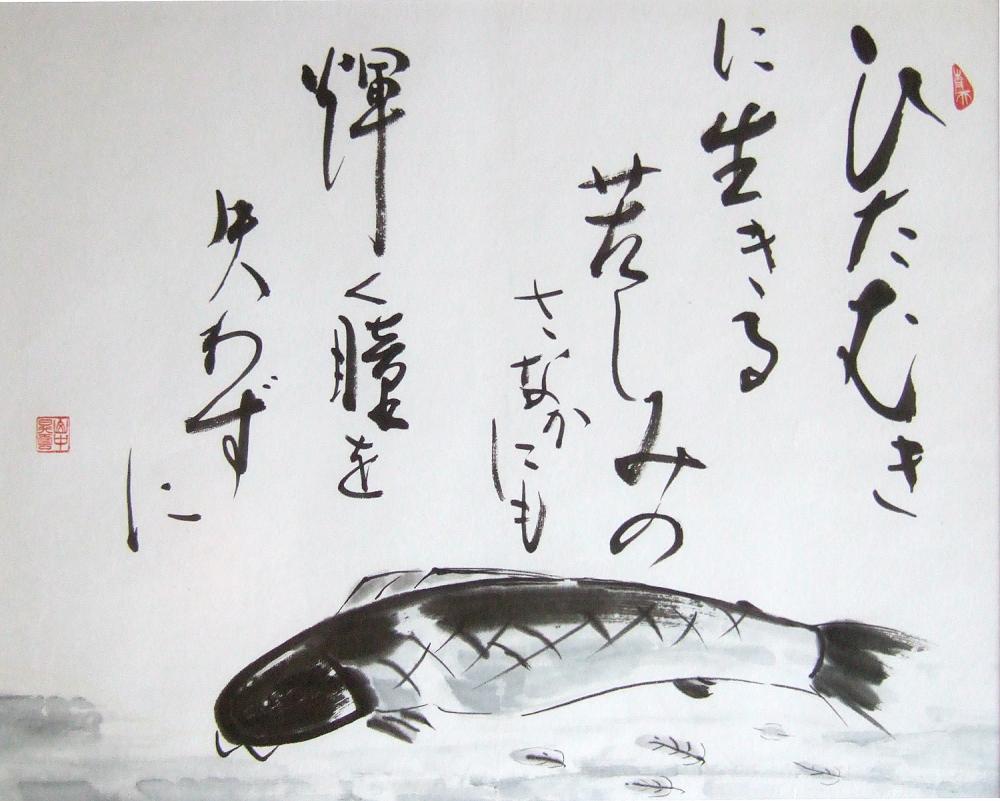 ひたむき
に生きる
苦しみの
さなかにも
輝く瞳を
失わずに